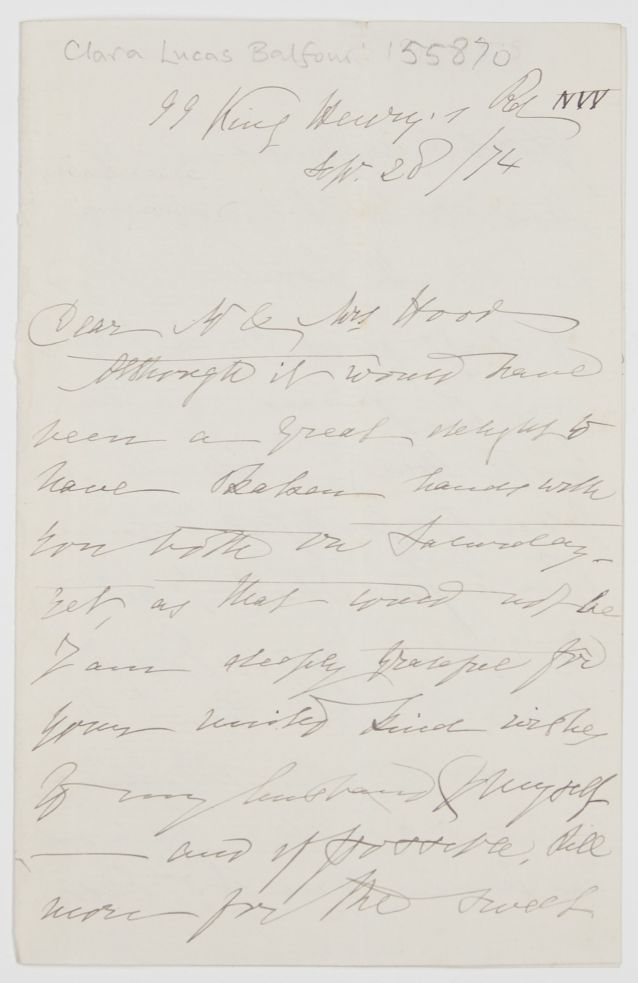 Clara Lucas Balfour 155870
99 King Henry's Rd NW
Sep. 28/74
Dear Mr & Mrs Hood
Although it would have
been a great delight to
have shaken hands with
you both on Saturday -
yet, as that could not be
I am deeply grateful for
your united kind wishes
to my husband & myself
— and if possible, still
more for the sweet